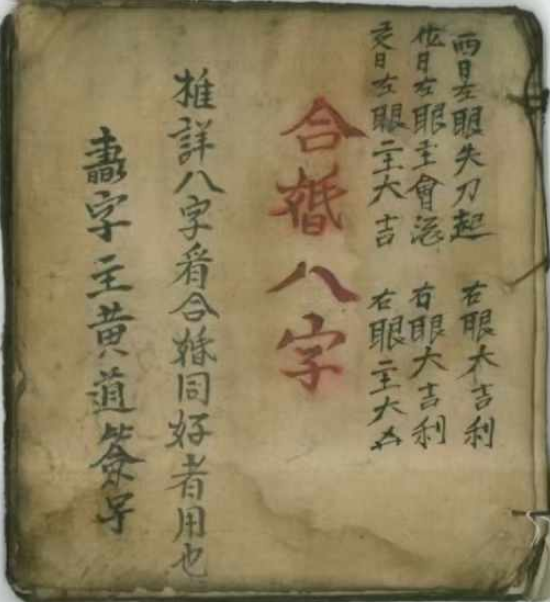 酉日左眼失刀起 右眼大吉利
戌日左眼主會客 右眼大吉利
亥日左眼主大吉 右眼主大凶
合婚八字
推詳八字看合婚同好者用也
書字主黄道簽字